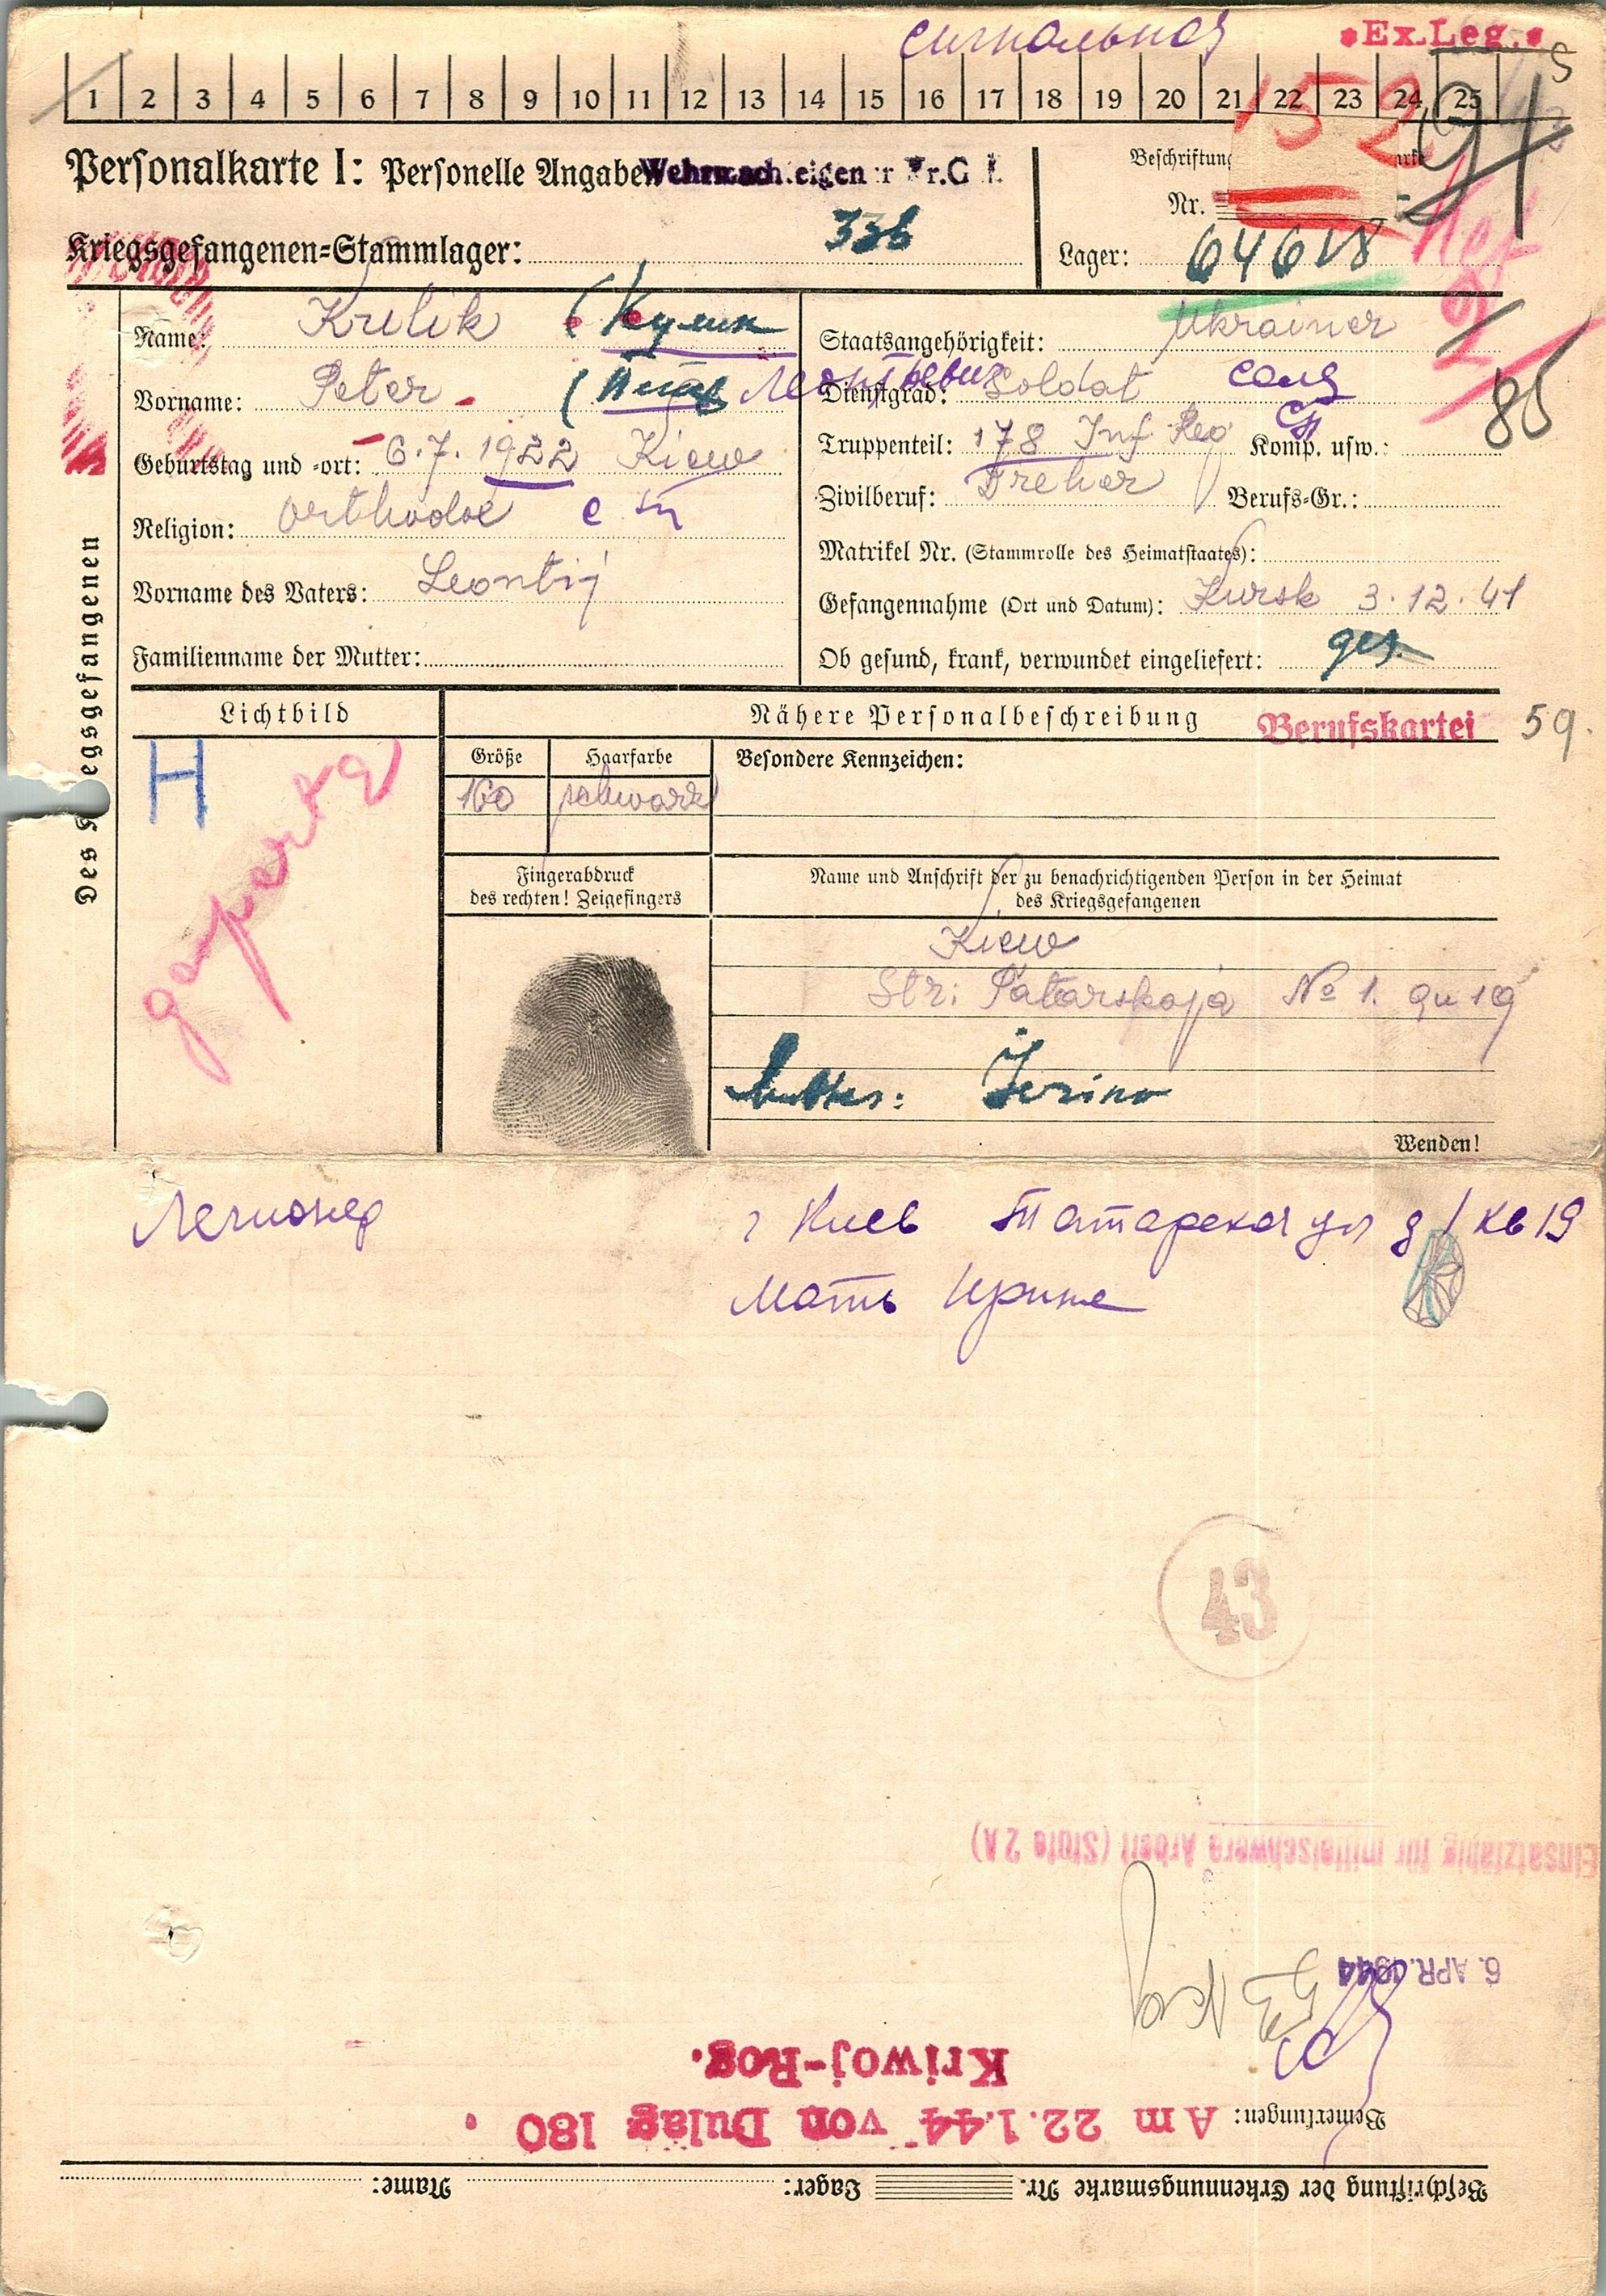 сигнальная
*Ex.Leg.*
1 2 3 4 5 6 7 8 9 10 11 12 13 14 15 16 17 18 19 20 21 22 23 24 25
152
91
Personalkarte I: Personelle Angaben
Beschriftung
Nr.
Kriegsgefangenen=Stammlager: 336
Lager: 64618
Des Kriegsgefangenen
Name: Kulik (Кулик
Staatsangehörigkeit: Ukrainer
Vorname: Peter (Петр Леонтьевич
Dienstgrad: Soldat солд
85
Geburtstag und =ort: 6.7.1922 Kiew
Truppenteil: 178 Inf Reg Komp. usw.:
Zivilberuf: Dreher Berufs=Gr.:
Religion: orthodox
Matrikel Nr. (Stammrolle des Heimatstaates):
Vorname des Vaters: Leontij
Gefangennahme (Ort und Datum): Kursk 3.12.41
Familienname der Mutter:
Ob gesund, krank, verwundet eingeliefert: ges.
Lichtbild
Nähere Personalbeschreibung
Berufskartei
59.
H
Größe
Haarfarbe
Besondere Kennzeichen:
160
schwarz
Fingerabdruck
des rechten! Zeigefingers
Name und Anschrift der zu benachrichtigenden Person in der Heimat
des Kriegsgefangenen
Kiew
Str: Tatarskaja № 1. qu 19
Mutter: Irina
Wenden!
Легионер
г Киев Татарская ул д 1 кв 19
Мать Ирина
43
Einsatzfähig für mittelschwere Arbeit (Stufe 2A)
6. APR. 1944
Kriwoj-Rog.
Bemerkungen: Am 22.1.44 von Dulag 180
Beschriftung der Erkennungsmarke Nr. Lager: Name: